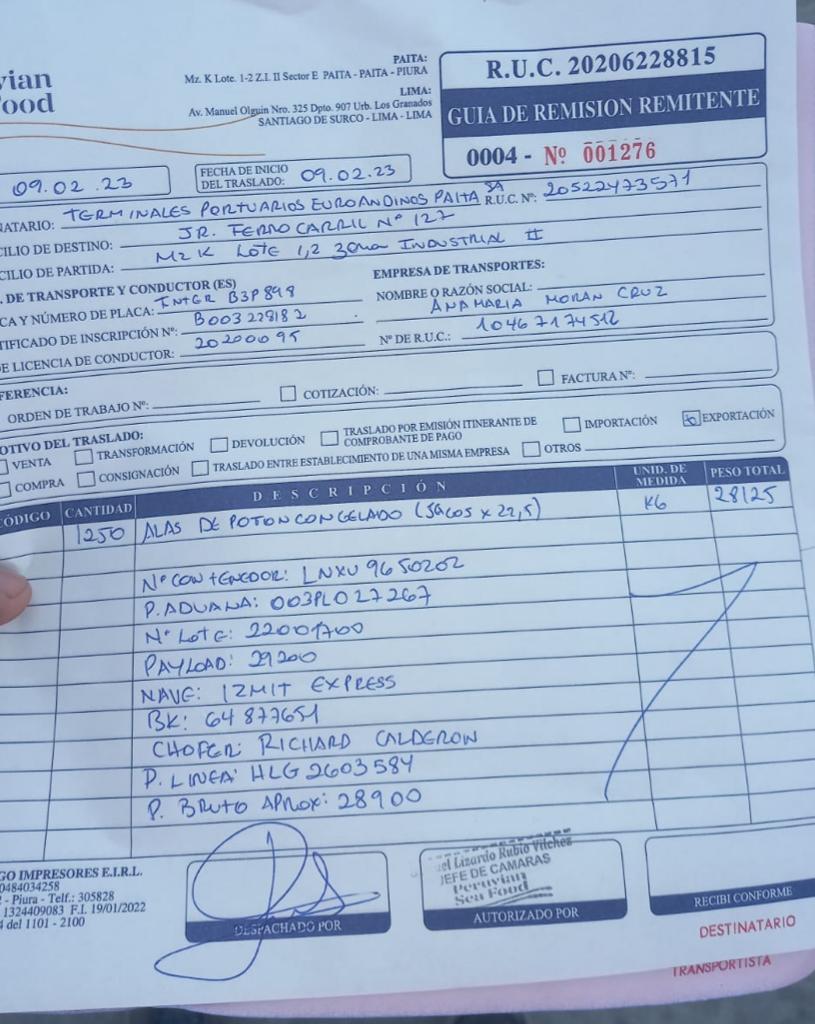 vian
ood
PAITA:
Mz. K Lote. 1-2 Z.I. II Sector E PAITA - PAITA - PIURA
LIMA:
Av. Manuel Olguin Nro. 325 Dpto. 907 Urb. Los Granados
SANTIAGO DE SURCO - LIMA - LIMA
R.U.C. 20206228815
GUIA DE REMISION REMITENTE
0004 - Nº 001276
09.02.23
FECHA DE INICIO DEL TRASLADO: 09.02.23
NATARIO: TERMINALES PORTUARIOS EUROANDINOS PAITA SA R.U.C. Nº: 20522473571
CILIO DE DESTINO: JR. FERROCARRIL Nº 127
CILIO DE PARTIDA: MZ K LOTE 1,2 zona INDUSTRIAL II
. DE TRANSPORTE Y CONDUCTOR (ES)
CA Y NÚMERO DE PLACA: INTGR B3P898
TIFICADO DE INSCRIPCIÓN Nº: B003228182
E LICENCIA DE CONDUCTOR: 20200095
EMPRESA DE TRANSPORTES:
NOMBRE O RAZÓN SOCIAL: ANAMARIA MORAN CRUZ
Nº DE R.U.C.: 10467174512
FERENCIA:
ORDEN DE TRABAJO Nº: COTIZACIÓN: FACTURA Nº:
OTIVO DEL TRASLADO:
VENTA TRANSFORMACIÓN DEVOLUCIÓN TRASLADO POR EMISIÓN ITINERANTE DE COMPROBANTE DE PAGO IMPORTACIÓN EXPORTACIÓN
COMPRA CONSIGNACIÓN TRASLADO ENTRE ESTABLECIMIENTO DE UNA MISMA EMPRESA OTROS
CÓDIGO CANTIDAD DESCRIPCIÓN UNID. DE MEDIDA PESO TOTAL
1250 ALAS DE POTON CONGELADO (SACOS x 22,5) KG 28125
Nº CONTENEDOR: LNXU 9650202
P. ADUANA: 003PL027267
Nº LOTE: 22001700
PAYLOAD: 29200
NAVE: IZMIT EXPRESS
BK: 64877651
CHOFER: RICHARD CALDERON
P. LINEA: HLG2603584
P. BRUTO APROX: 28900
GO IMPRESORES E.I.R.L.
0484034258
- Piura - Telf.: 305828
1324409083 F.I. 19/01/2022
4 del 1101 - 2100
DESPACHADO POR
el Lizardo Rubio Vilchez
JEFE DE CAMARAS
Peruvian
Sea Food
AUTORIZADO POR
RECIBI CONFORME
DESTINATARIO
TRANSPORTISTA